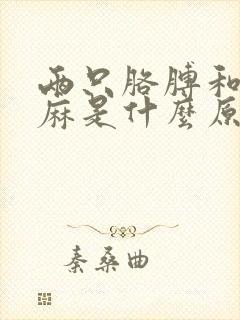 两只胳膊和
麻是什麽原
秦桑曲